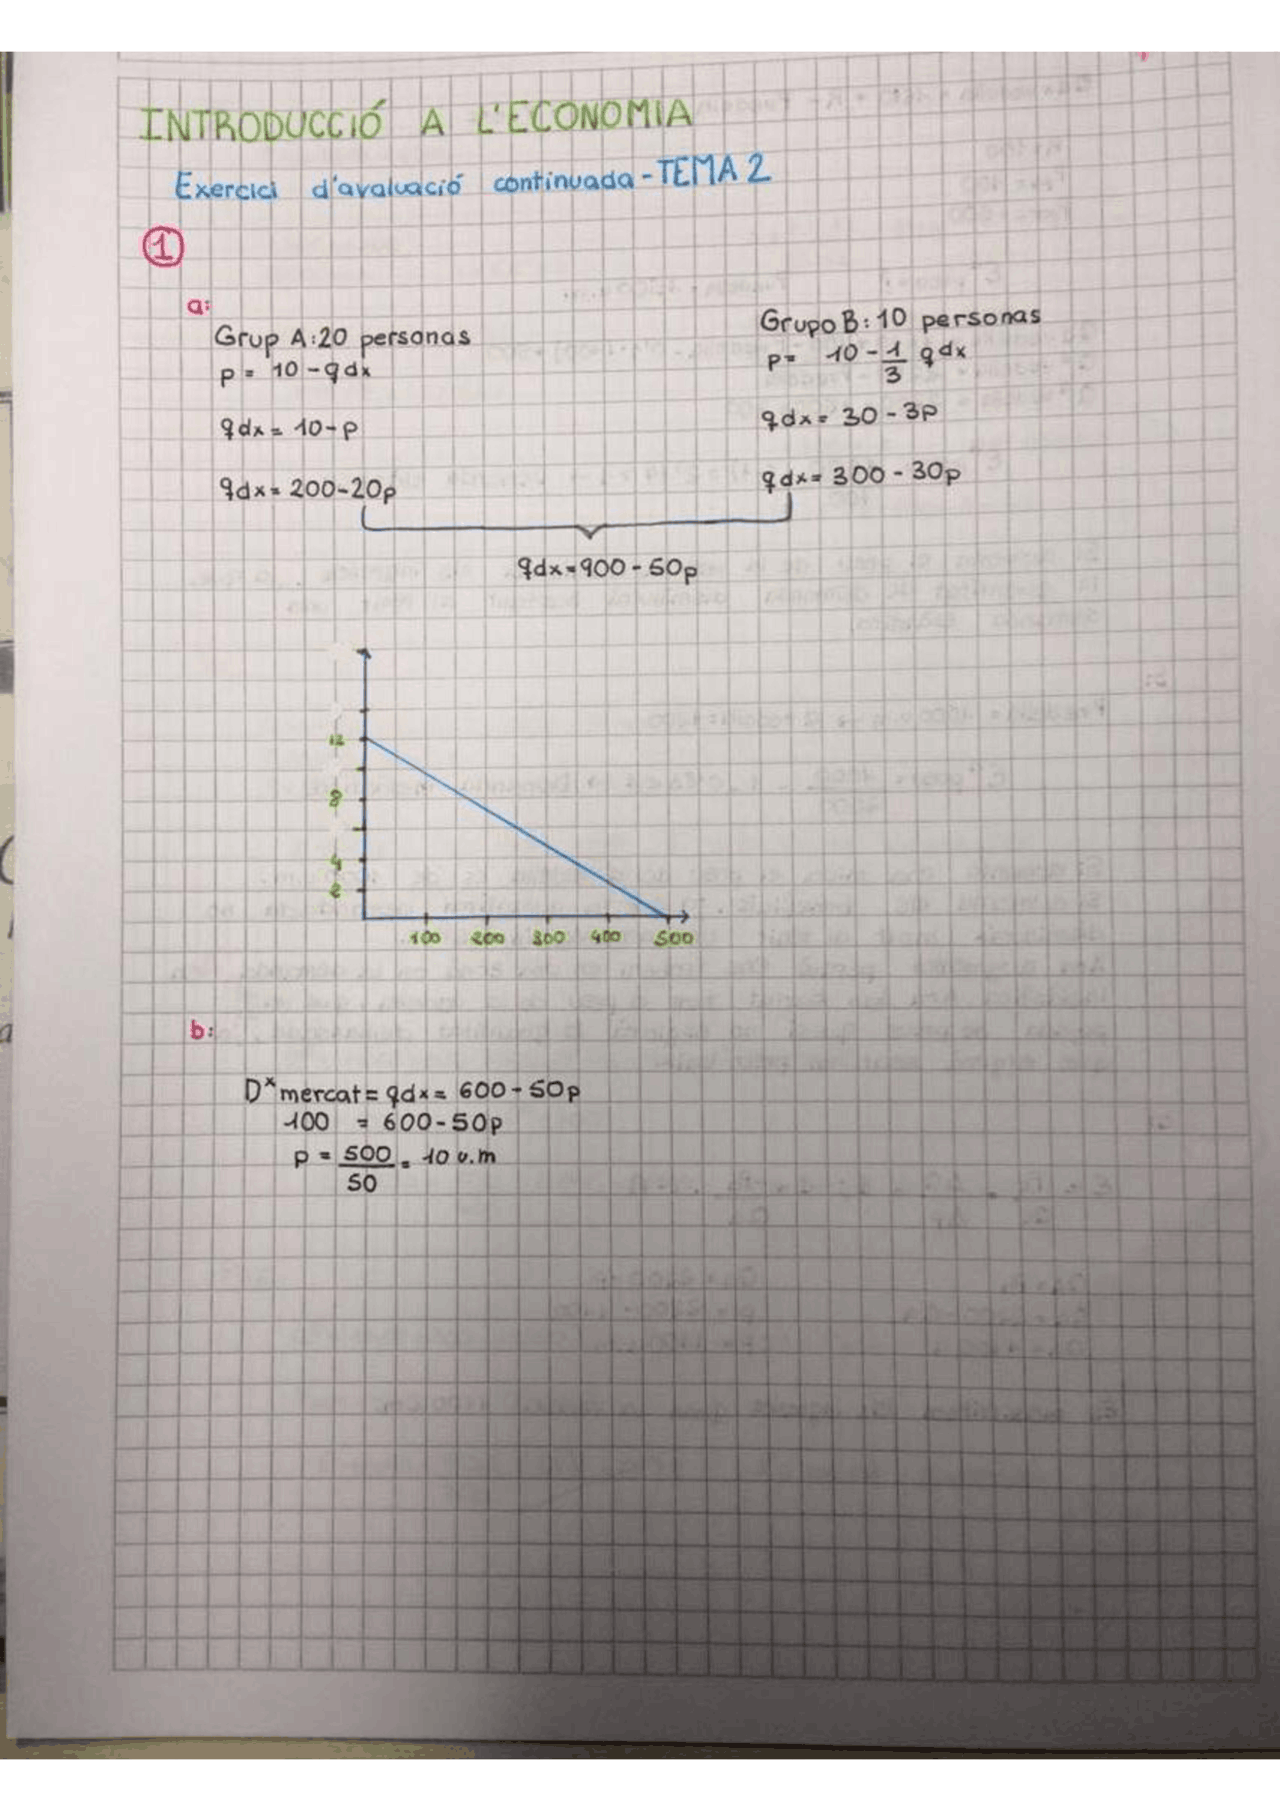 INTRODUCCIÓ A L'ECONOMIA
Exercici d'avaluació continuada - TEMA 2
1
a:
Grup A: 20 personas
p = 10 - qdx
qdx = 10 - p
qdx = 200 - 20p
Grupo B: 10 personas
p = 10 - 1/3 qdx
qdx = 30 - 3p
qdx = 300 - 30p
qdx = 900 - 50p
12
8
4
2
100 200 300 400 500
b:
Dˣ mercat = qdx = 600 - 50p
100 = 600 - 50p
p = 500/50 = 10 u.m